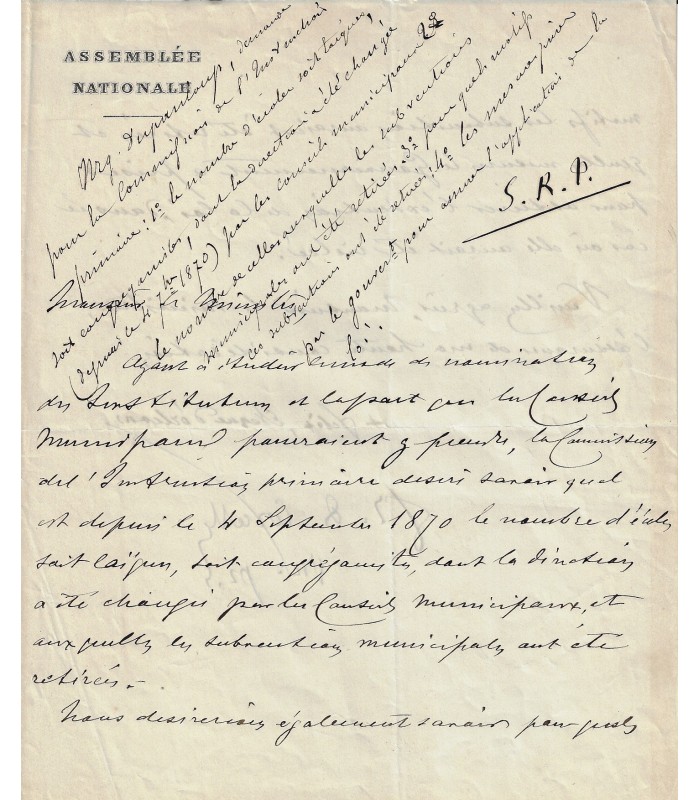 ASSEMBLÉE
NATIONALE
Mgr. Dupanloup, demande
pour la Commission de l'Instruction
primaire: 1º le nombre d'écoles soit laïques,
soit congréganistes, dont la direction a été changée
(depuis le 4 7bre 1870) par les conseils municipaux 2º
le nombre de celles auxquelles les subventions
municipales ont été retirées. 3º pour quels motifs
ces subventions ont été retirées; 4º les mesures prises
par le gouvert pour assurer l'application de la
loi.
S. R. P.
Monsieur le Ministre
Ayant à étudier le mode de nomination
des Instituteurs et la part que les Conseils
Municipaux pourraient y prendre, la Commission
de l'Instruction primaire désire savoir quel
est depuis le 4 Septembre 1870 le nombre d'écoles
soit laïques, soit congréganistes, dont la direction
a été changée par les Conseils Municipaux, et
auxquelles les subventions municipales ont été
retirées.-
Nous desirerions également savoir pour quels